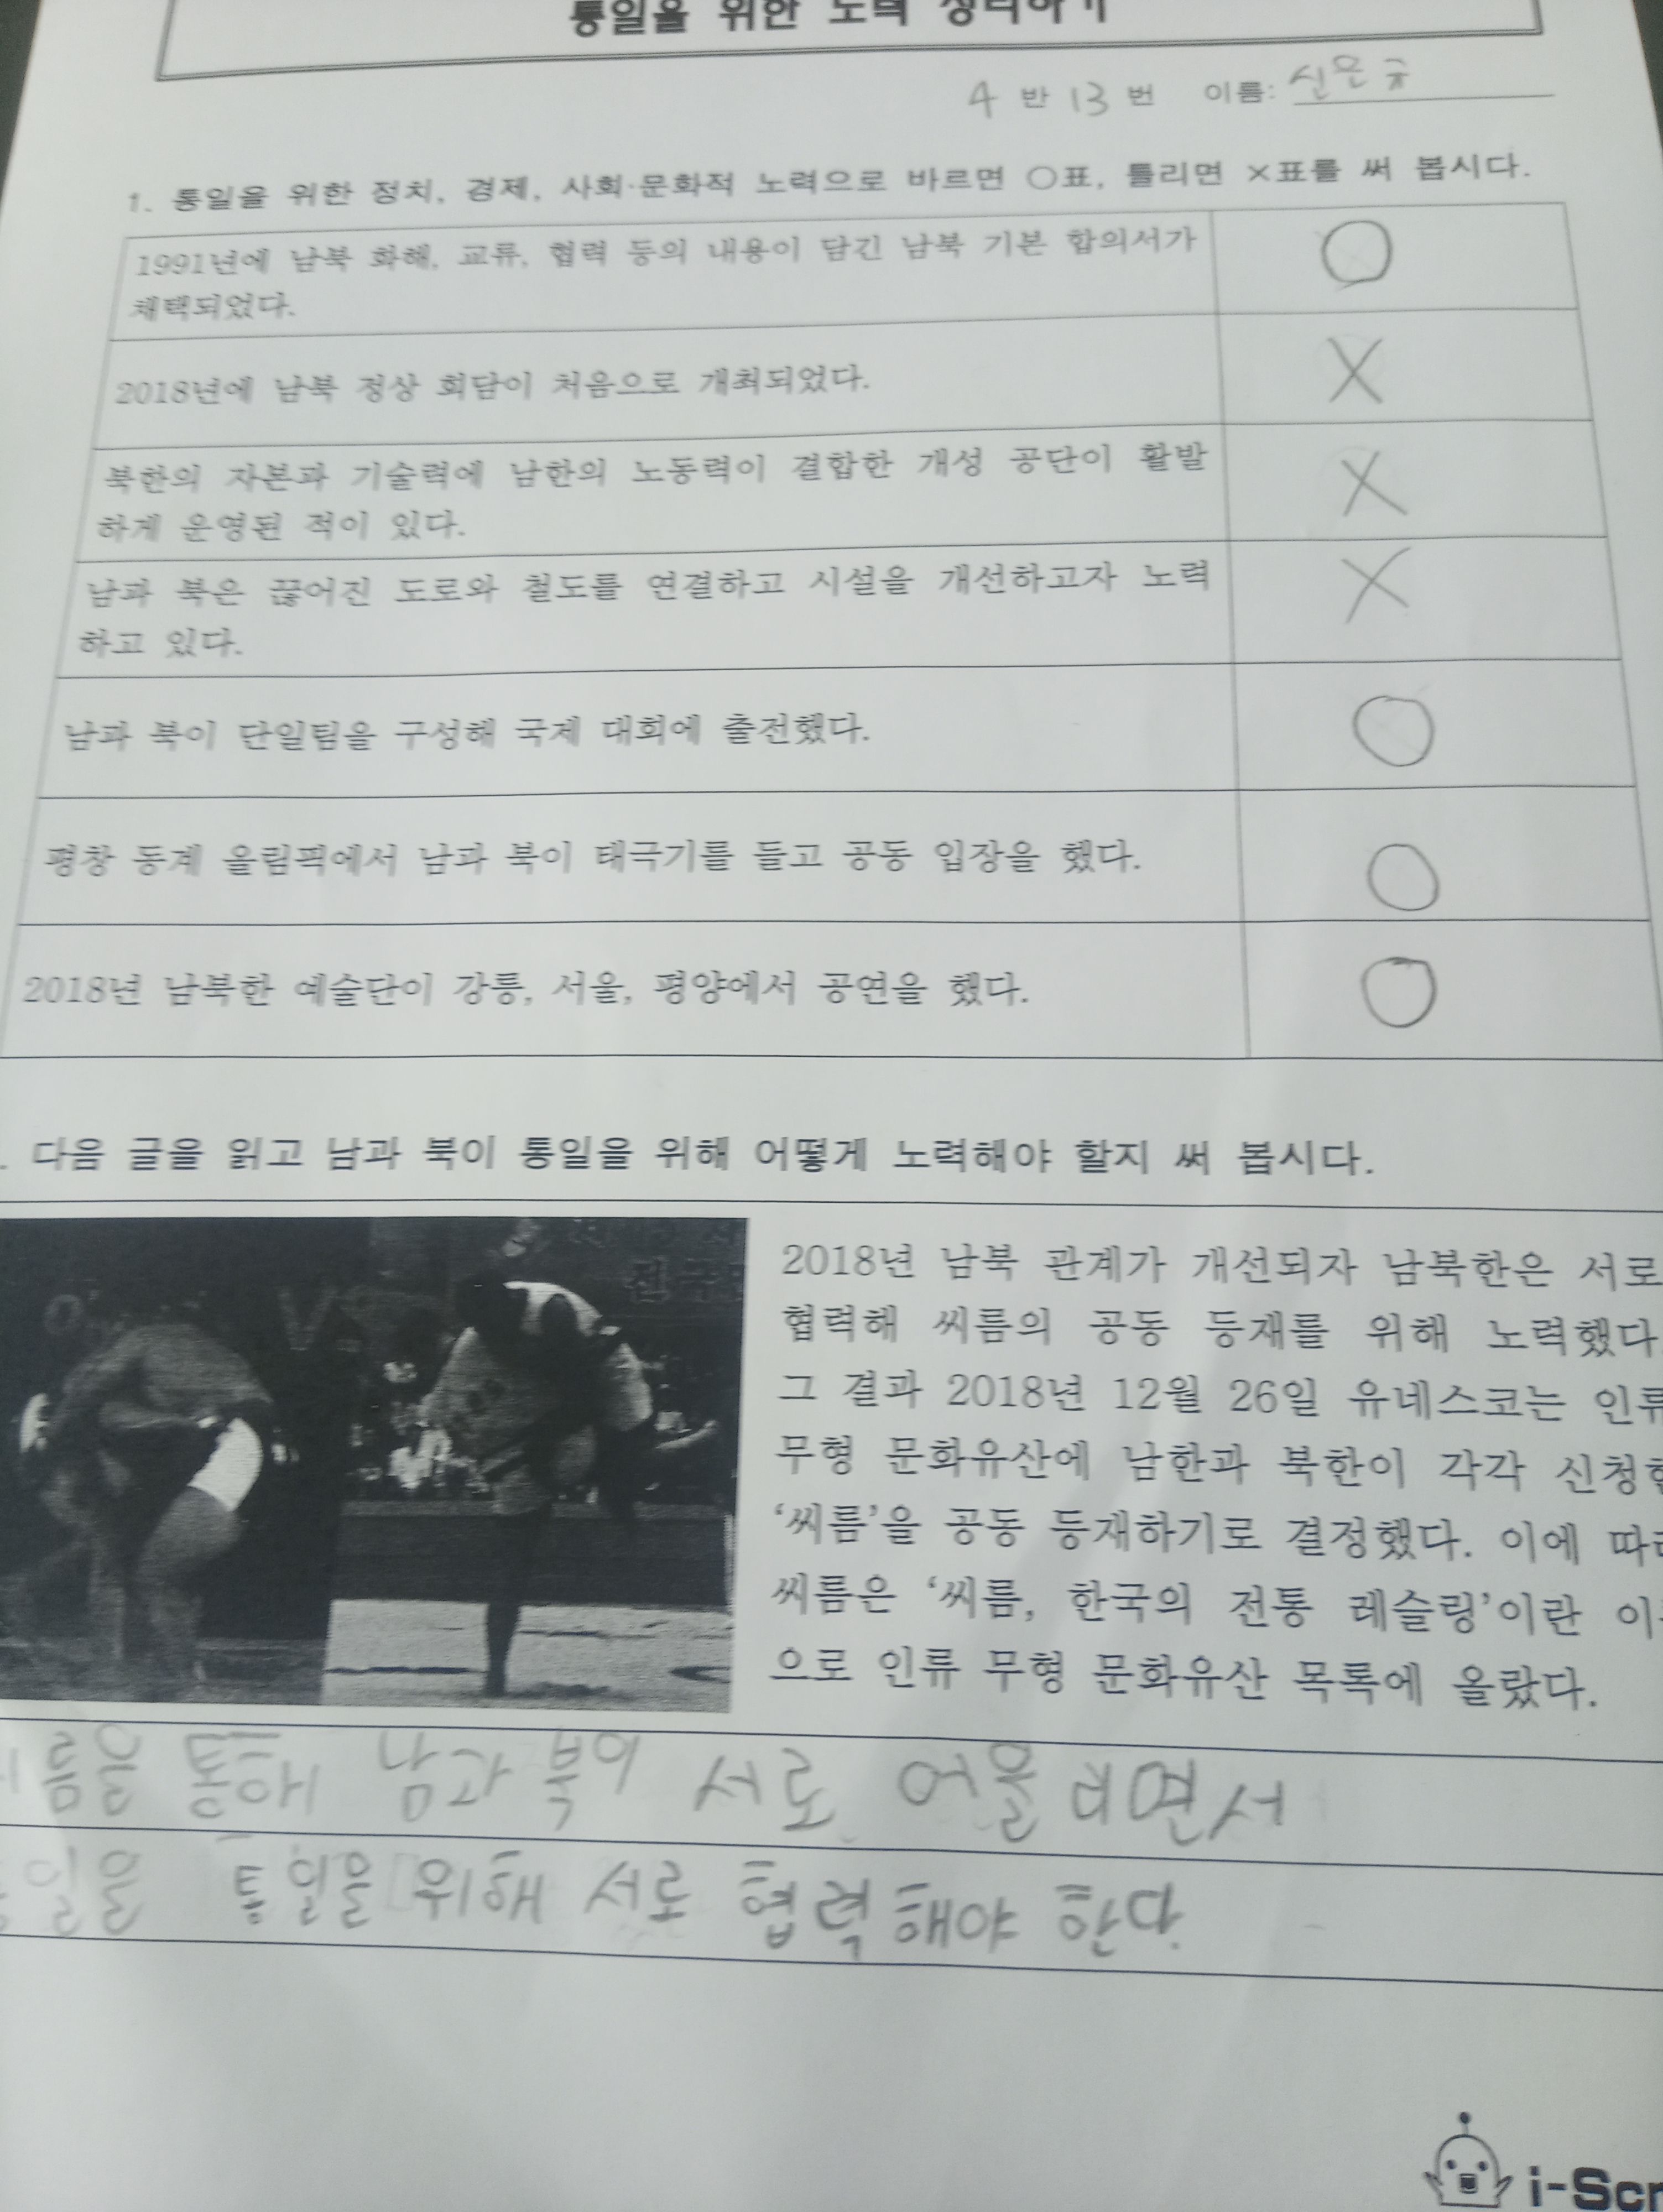 통일을 위한 노력 정리하기
4 반 13 번 이름: 신은규
1. 통일을 위한 정치, 경제, 사회·문화적 노력으로 바르면 ○표, 틀리면 ×표를 써 봅시다.
1991년에 남북 화해, 교류, 협력 등의 내용이 담긴 남북 기본 합의서가 ○
채택되었다.
2018년에 남북 정상 회담이 처음으로 개최되었다. ×
북한의 자본과 기술력에 남한의 노동력이 결합한 개성 공단이 활발 ×
하게 운영된 적이 있다.
남과 북은 끊어진 도로와 철도를 연결하고 시설을 개선하고자 노력 ×
하고 있다.
남과 북이 단일팀을 구성해 국제 대회에 출전했다. ○
평창 동계 올림픽에서 남과 북이 태극기를 들고 공동 입장을 했다. ○
2018년 남북한 예술단이 강릉, 서울, 평양에서 공연을 했다. ○
. 다음 글을 읽고 남과 북이 통일을 위해 어떻게 노력해야 할지 써 봅시다.
2018년 남북 관계가 개선되자 남북한은 서로
협력해 씨름의 공동 등재를 위해 노력했다.
그 결과 2018년 12월 26일 유네스코는 인류
무형 문화유산에 남한과 북한이 각각 신청한
'씨름'을 공동 등재하기로 결정했다. 이에 따라
씨름은 '씨름, 한국의 전통 레슬링'이란 이
으로 인류 무형 문화유산 목록에 올랐다.
름을 통해 남과 북이 서로 어울리면서
일을 통일을 위해 서로 협력해야 한다.
i-Scr